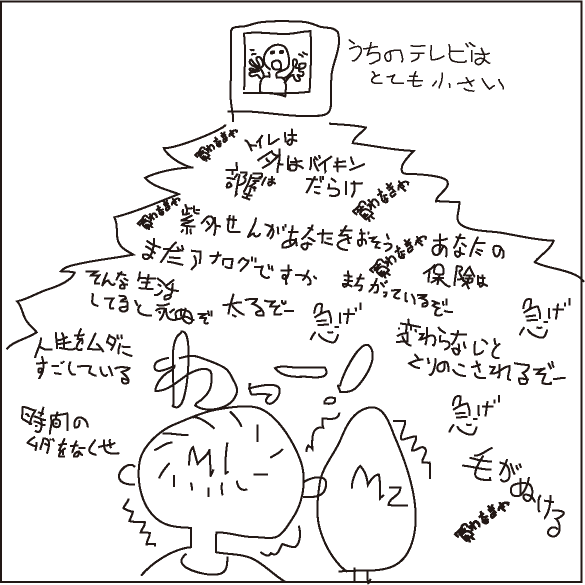 うちのテレビは
とても小さい
買わなきゃ
トイレは
外はバイキン
部屋は だらけ
買わなきゃ
買わなきゃ
紫外せんがあなたをおそう
買わなきゃ
あなたの
保険は
まちがっているぞー
まだアナログですか
そんな生活
してると死ぬぞ
太るぞー
急げ
急げ
変わらないと
とりのこされるぞー
人生をムダに
すごしている
わっー!
急げ
時間の
ムダをなくせ
毛が
ぬける
買わなきゃ
M1
M2